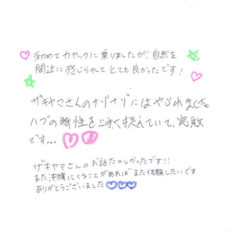 初めてカヤックに乗りましたが、自然を
間近に感じられてとても良かったです！
ザキヤマさんのナゾナゾにはやられました
ハブの特性を上手く捉えていて、完敗
です…
ザキヤマさんのお話たのしかったです!!
また沖縄にくることがあれば また体験したいです
ありがとうございました